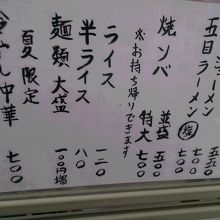 ラーメン 五五〇
五目ラーメン 塩 七〇〇
焼ソバ 並盛 五〇〇
特大 七〇〇
※お持ち帰りできます
ライス 一二〇
半ライス 八〇
麺類大盛 一〇〇円増
夏限定
冷やし中華 七〇〇